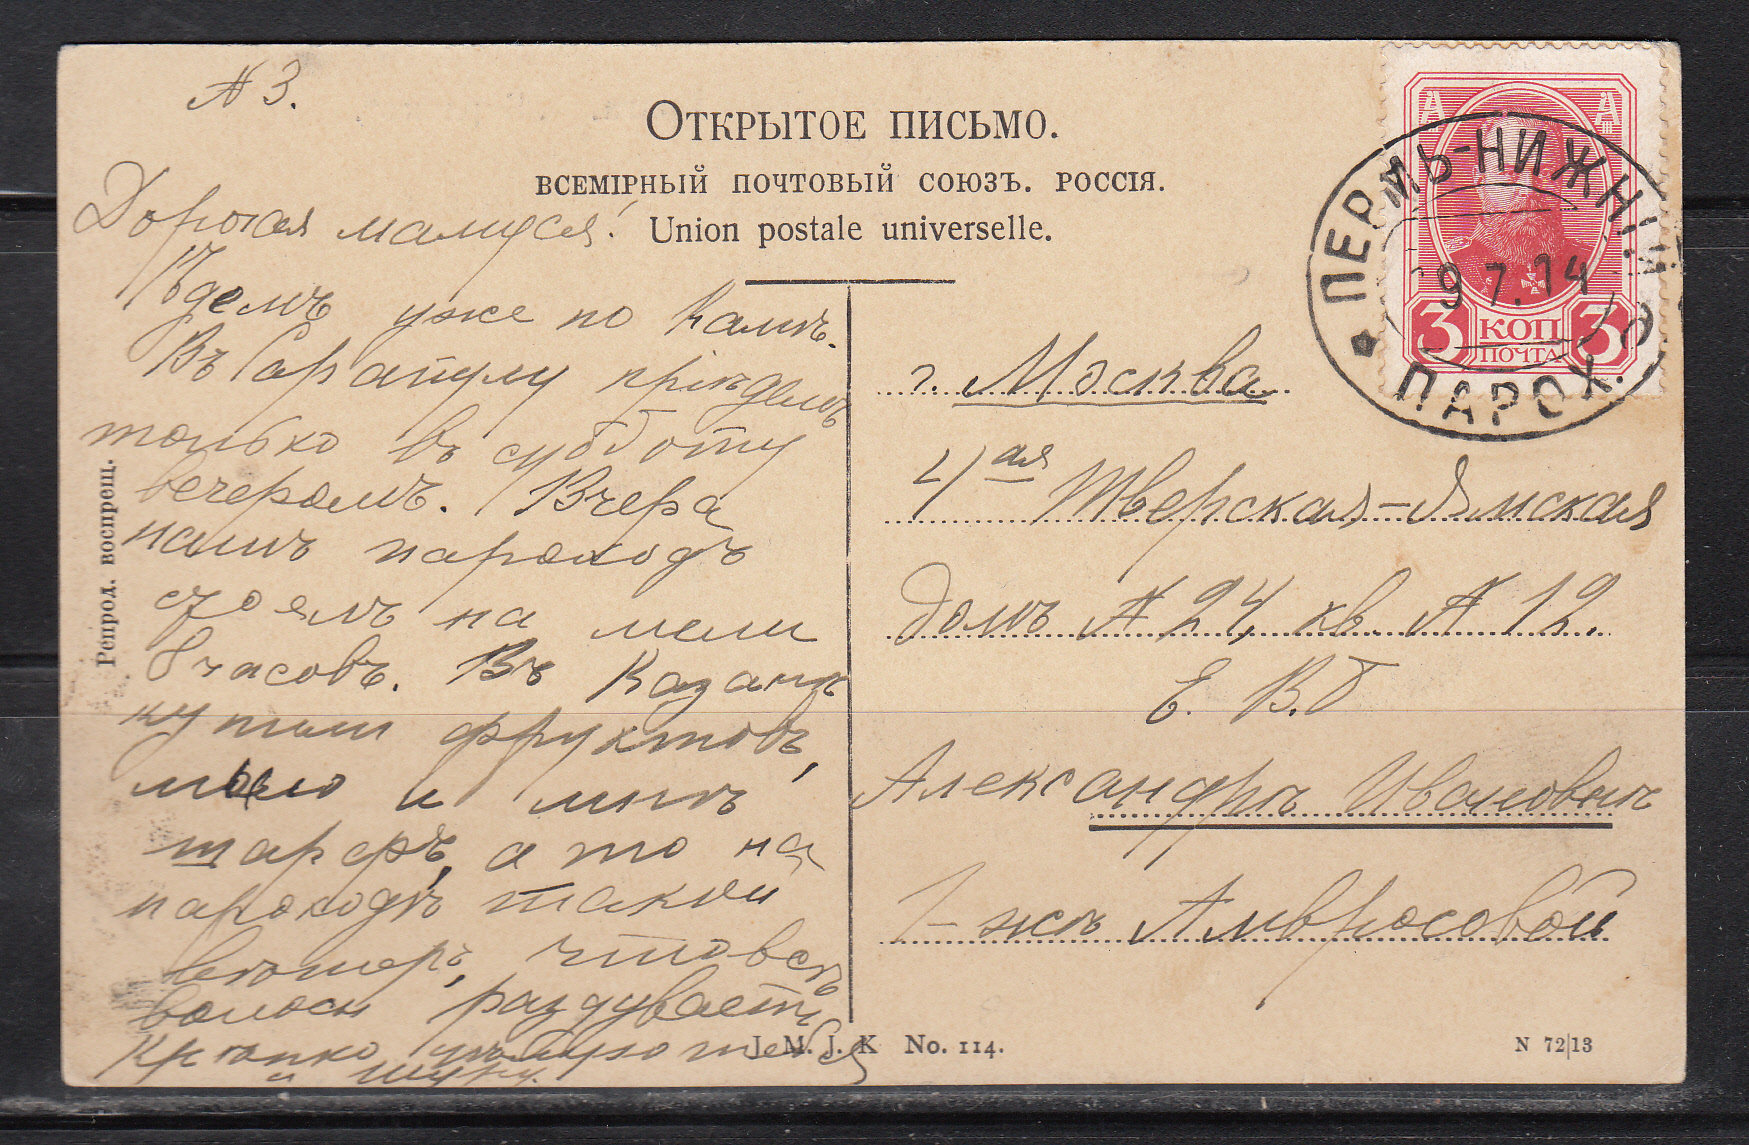 N 3.
Открытое письмо.
ВСЕМІРНЫЙ ПОЧТОВЫЙ СОЮЗЪ. РОССІЯ.
Union postale universelle.
Дорогая мамуся!
Ѣдемъ уже по Камѣ.
Въ Сарапулу пріѣдемъ
только въ субботу
вечеромъ. Вчера
нашъ пароходъ
стоялъ на мели
8 часовъ. Въ Казани
купили фруктовъ,
мыло и мнѣ
шарфъ, а то на
пароходѣ такой
вѣтеръ, что всѣ
волосы раздуваетъ
Крѣпко цѣлую тебя
и
Репрод. воспрещ.
ПЕРМЬ-НИЖНІЙ
9 7. 14
ПАРОХ.
3 КОП 3
ПОЧТА
г. Москва.
4ая Тверская-Ямская
домъ N 24, кв. N 12.
Е. В. Б
Александрѣ Ивановнѣ
Г-жѣ Амвросовой
J. M. J. K No. 114.
N 72|13